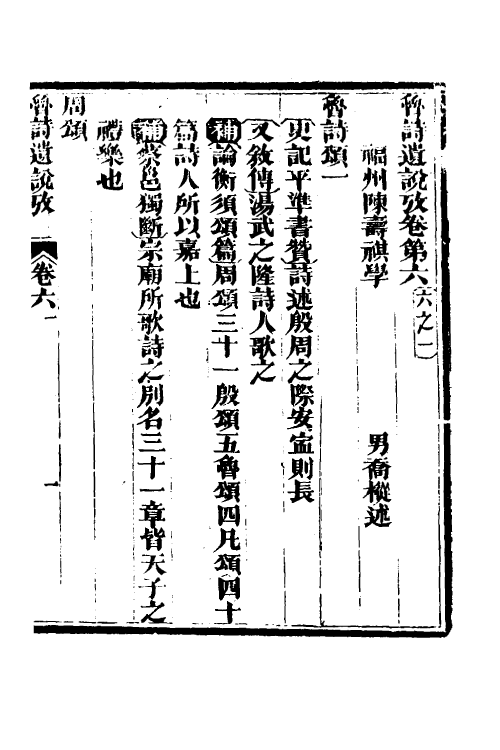 魯詩遺說攷卷第六 六之一
福州陳壽祺學 男喬樅述
魯詩頌一
史記平準書贊詩述殷周之際安寍則長
又敘傳湯武之隆詩人歌之
補論衡須頌篇周頌三十一殷頌五魯頌四凡頌四十
篇詩人所以嘉上也
補蔡邕獨斷宗廟所歌詩之別名三十一章皆天子之
禮樂也
周頌
魯詩遺說攷 卷六 一
一